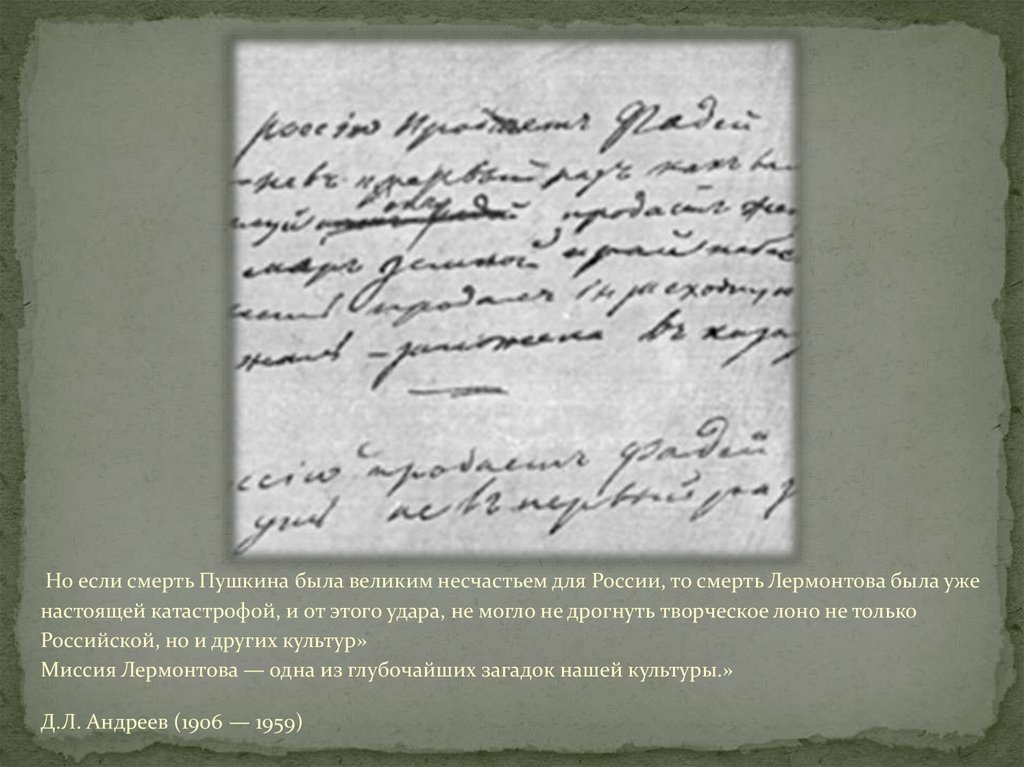 Россiю продаетъ Фадей
не въ первый разъ какъ
продастъ
земной и рай
продалъ
въ
ссiю продаетъ Фадей
не въ первый раз
Но если смерть Пушкина была великим несчастьем для России, то смерть Лермонтова была уже
настоящей катастрофой, и от этого удара, не могло не дрогнуть творческое лоно не только
Российской, но и других культур»
Миссия Лермонтова — одна из глубочайших загадок нашей культуры.»
Д.Л. Андреев (1906 — 1959)